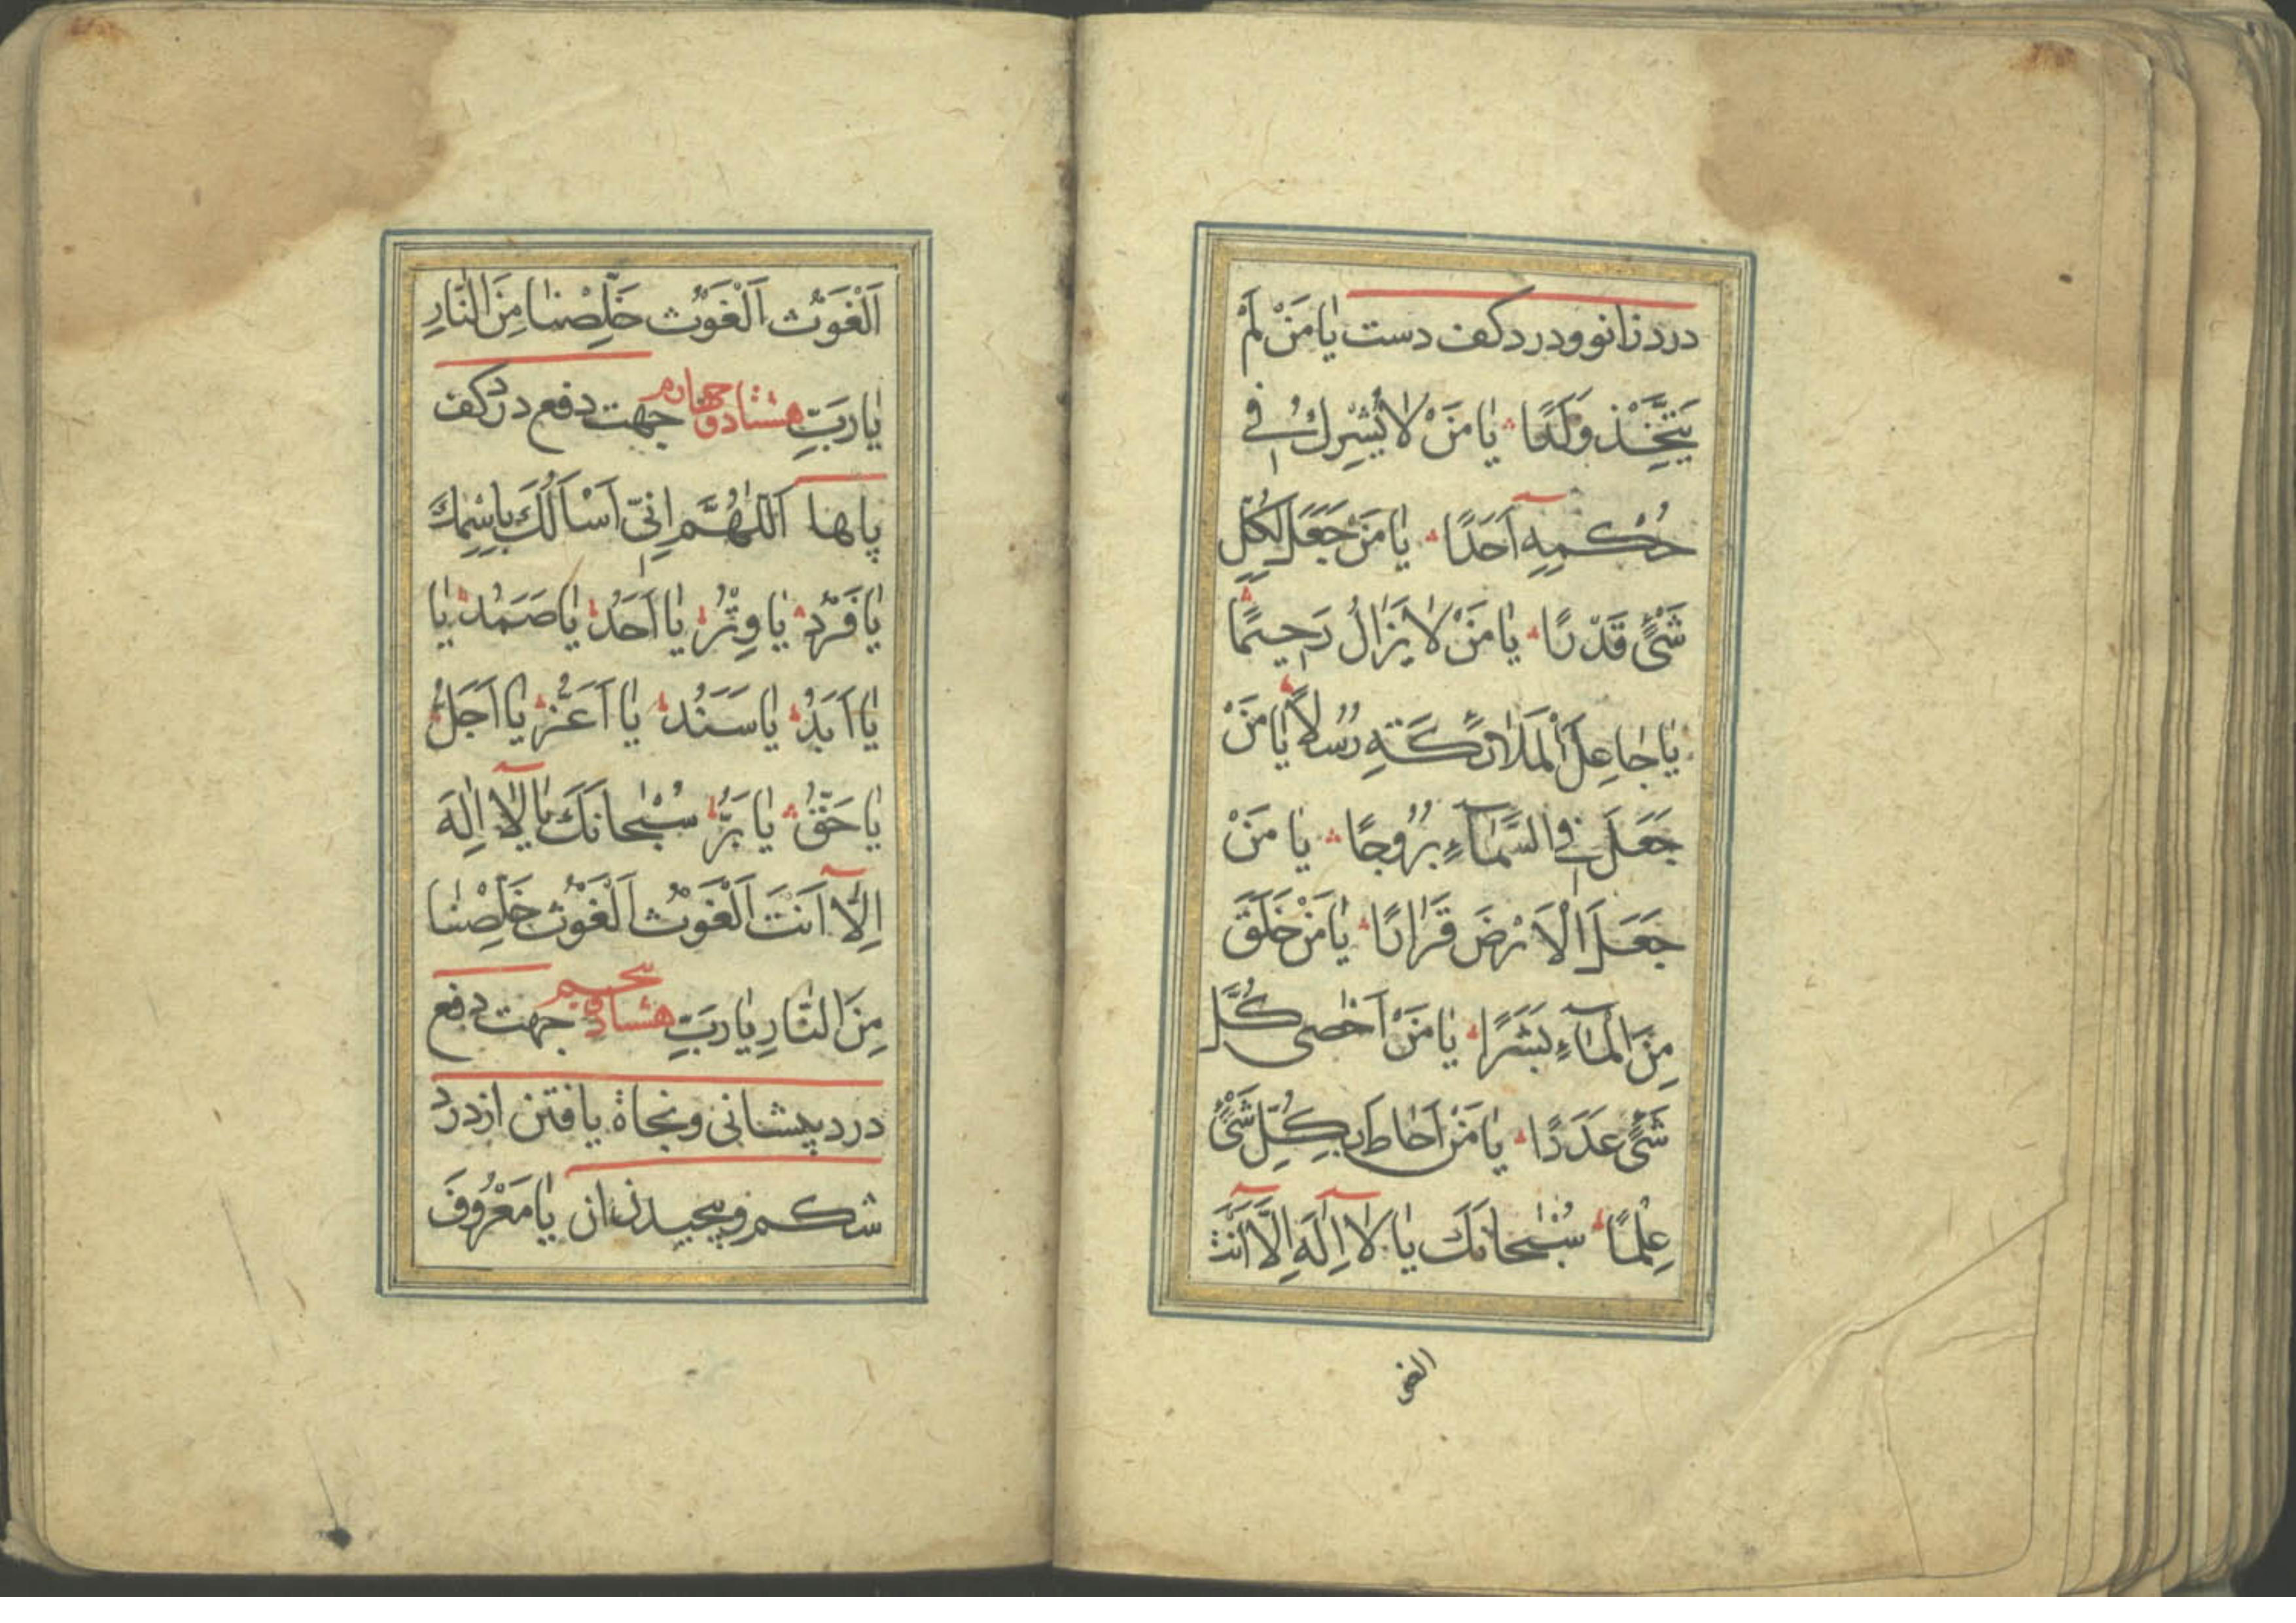 درد زانو و درد کف دست يٰا مَنْ لَمْ
يَتَّخِذْ وَلَدًا يٰا مَنْ لٰا يُشْرِكُ فِي
حُكْمِهِ آَحَدًا يٰا مَنْ جَعَلَ لِكُلِّ
شَيْءٍ قَدْرًا يٰا مَنْ لٰا يَزٰالُ رَحِيمًا
يٰا جٰاعِلَ الْمَلٰائِكَةِ رُسُلًا يٰا مَنْ
جَعَلَ فِي السَّمٰآءِ بُرُوجًا يٰا مَنْ
جَعَلَ الْاَرْضَ قَرٰارًا يٰا مَنْ خَلَقَ
مِنَ الْمٰآءِ بَشَرًا يٰا مَنْ اَحْصٰى كُلَّ
شَيْءٍ عَدَدًا يٰا مَنْ اَحٰاطَ بِكُلِّ شَيْءٍ
عِلْمًا سُبْحٰانَكَ يٰا لٰا اِلٰهَ اِلَّا اَنْتَ
الغو
اَلْغَوْث اَلْغَوْث خَلِّصْنٰا مِنَ النّٰارِ
يٰا رَبِّ هشتاد و چهارم جهت دفع درد کف
پاها اَللّٰهُمَّ اِنِّي اَسْاَلُكَ بِاسْمِكَ
يٰا فَرْدُ يٰا وِتْرُ يٰا اَحَدُ يٰا صَمَدُ يٰا
يٰا اَبَدُ يٰا سَنَدُ يٰا اَعَزُّ يٰا اَجَلُّ
يٰا حَقُّ يٰا بَرُّ سُبْحٰانَكَ يٰا لٰا اِلٰهَ
اِلَّا اَنْتَ اَلْغَوْث اَلْغَوْث خَلِّصْنٰا
مِنَ النّٰارِ يٰا رَبِّ هشتاد و پنجم جهت دفع
درد پیشانی و نجاة یافتن از درد
شکم و پیچیدن ان يٰا مَعْرُوفَ